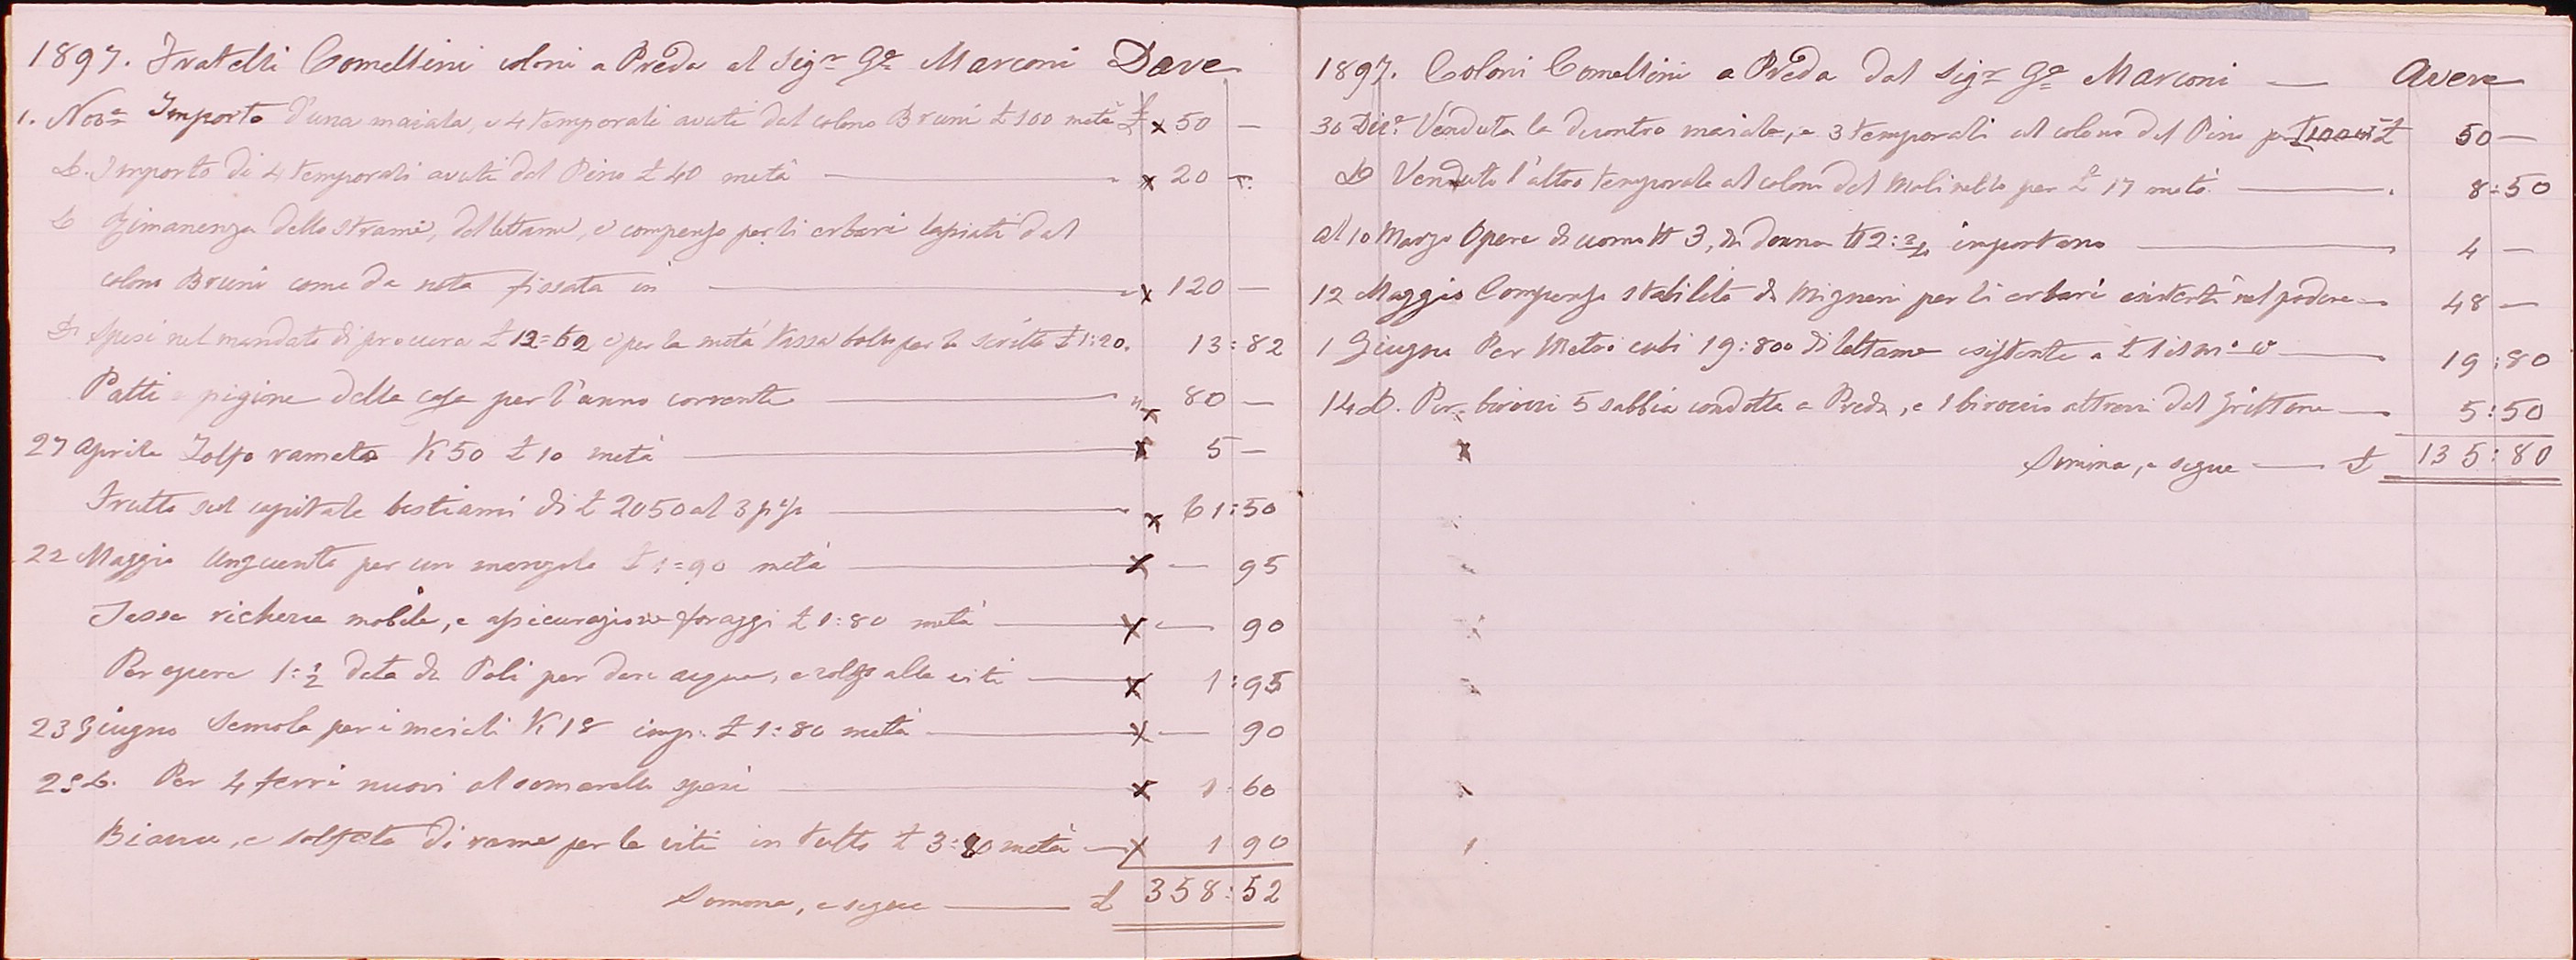 1897. Fratelli Comellini coloni a Preda al Sigr. Ge. Marconi Dave
1. Nove. Importo d'una maiala, e 4 temporali avuti dal colono Bruni £ 100 metà £ x 50 —
D. Importo di 4 temporali avuti dal Pino £ 40 metà — x 20 —
D Rimanenza dello strame, del lettame, e compenso per li erbari lasciati dal
colono Bruni come da nota fissata in — x 120 —
D. Spesi nel mandato di procura £ 12=62 e per la metà tassa bollo per la scritta £ 1:20. 13:82
Patti pigione della casa per l'anno corrente — " x 80 —
27 Aprile Zolfo ramato K 50 £ 10 metà — x 5 —
Frutto sul capitale bestiami di £ 2050 al 3 p% — x 61:50
22 Maggio Unguento per un mongolo £ 1=90 metà — x — 95
Tassa richezza mobile, e assicurazione foraggi £ 1:80 metà — x — 90
Per opere 1:1/2 data da Poli per dare acqua, e zolfo alle viti — x 1:95
23 Giugno Semola per i maiali K 18 imp. £ 1:80 metà — x — 90
25 D. Per 4 ferri nuovi al somarello spesi — x 1 60
Bianco, e solfato di rame per le viti in tutto £ 3:80 metà — x 1 90
Somma, e segue — £ 358:52
1897. Coloni Comellini a Preda dal Sigr. Ge. Marconi — Avere
30 Dice. Venduta la dicontro maiala, e 3 temporali al colono del Pino per £ 50 —
D Venduto l'altro temporale al colono del Molinello per £ 17 metà — 8:50
al 10 Marzo Opere di uomo N 3, da donna N 2: importano — 4 —
12 Maggio Compenso stabilito da Migneni per li erbari esistenti nel podere — 48 —
1 Giugno Per Metri cubi 19:800 di lettame esistente a £ 1 il m.c. — 19:80
14 D. Per birocci 5 sabbia condotta a Preda, e 1 biroccio attrezzi dal Griffone — 5:50
Somma, e segue — £ 135:80